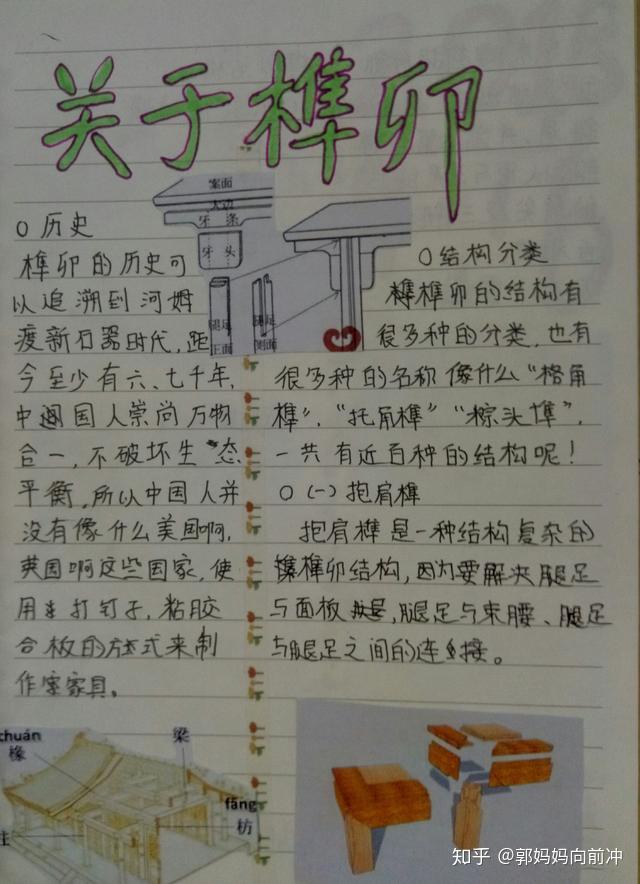 关于榫卯
案面
大边
牙条
牙头
腿足
正面
腿足
侧面
O 历史
榫卯的历史可
以追溯到河姆
渡新石器时代,距
今至少有六、七千年,
中国人崇尚万物
合一,不破坏生态
平衡,所以中国人并
没有像什么美国啊,
英国啊这些国家,使
用打钉子,粘胶
合板的方式来制
作家具。
O 结构分类
榫卯的结构有
很多种的分类,也有
很多种的名称像什么“格角
榫”,“托角榫”“粽头榫”,
一共有近百种的结构呢!
O (一) 抱肩榫
抱肩榫是一种结构复杂的
榫卯结构,因为要解决腿足
与面板,腿足与束腰、腿足
与腿足之间的连接。
chuán
椽
梁
fāng
枋
柱
知乎 @郭妈妈向前冲